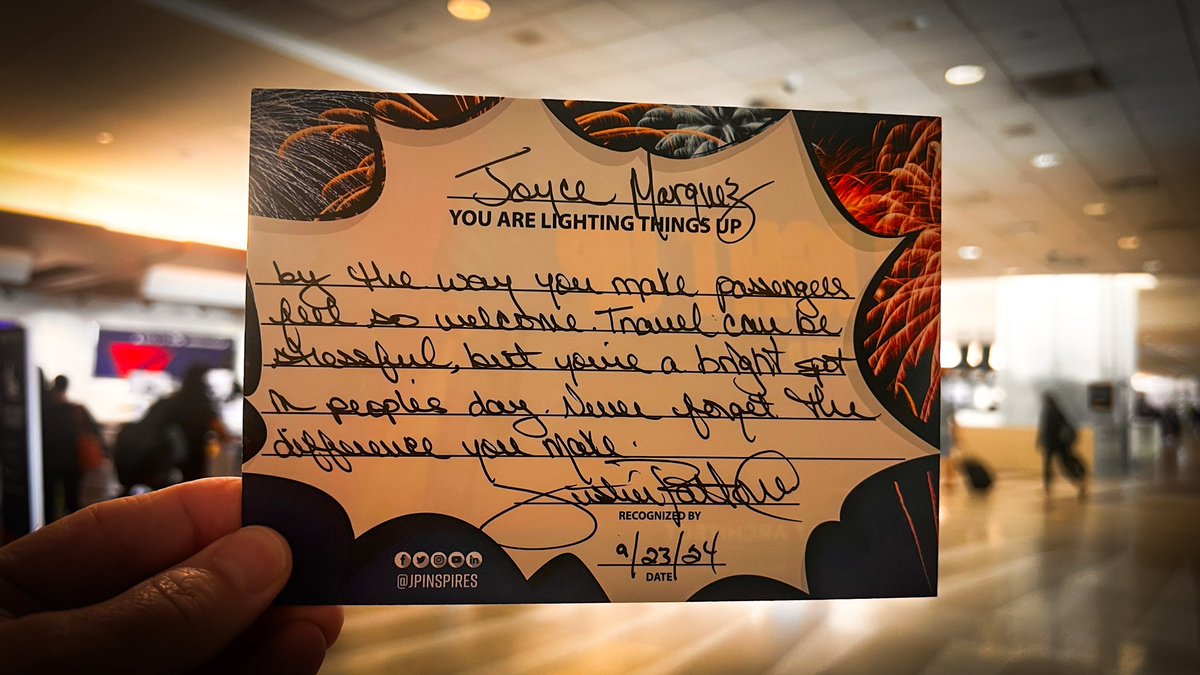 Joyce Marquez
YOU ARE LIGHTING THINGS UP
by the way you make passengers
feel so welcome. Travel can be
stressful, but you're a bright spot
in people's day. Never forget the
difference you make.
Justin Patton
RECOGNIZED BY
9/23/24
DATE
@JPINSPIRES